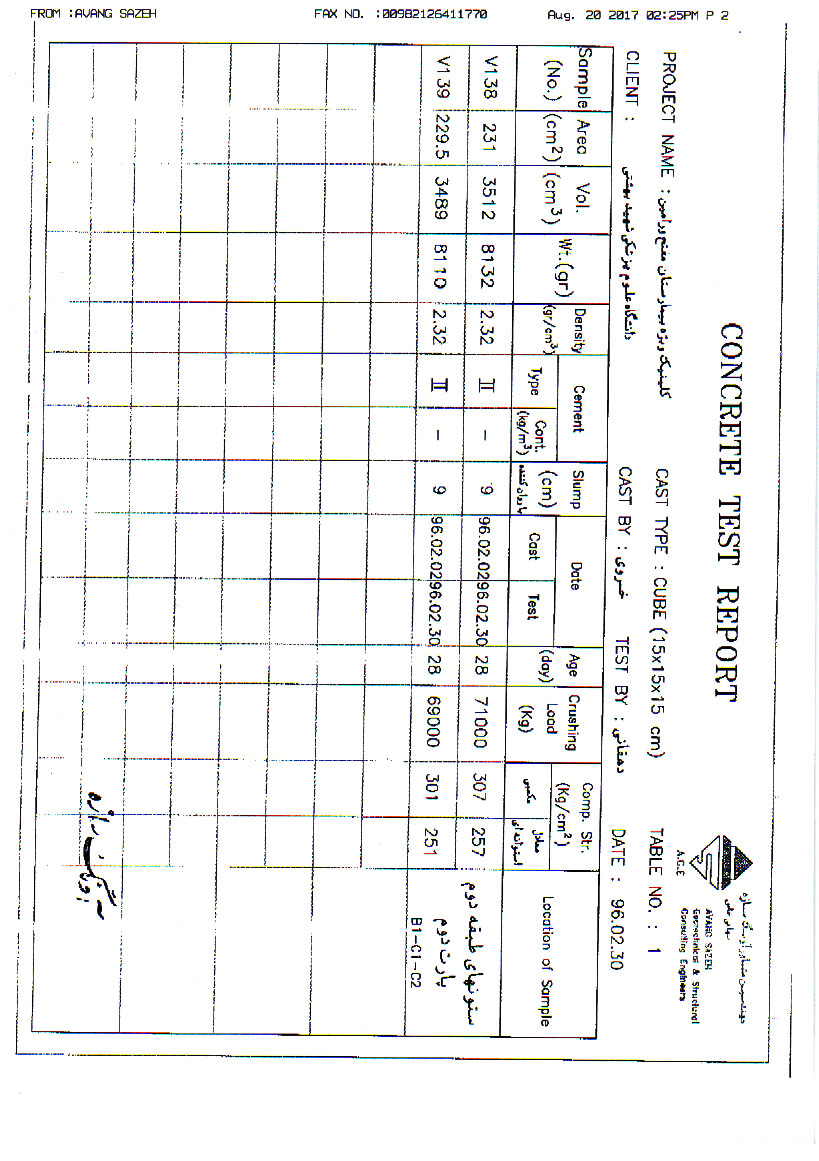 FROM :AVANG SAZEH FAX NO. :00982126411770 Aug. 20 2017 02:25PM P 2
CONCRETE TEST REPORT
مهندسین مشاور آونگ سازه
سهامی خاص
AVANG SAZEH
Geotechnical & Structural
Consulting Engineers
A.G.E
PROJECT NAME : کلینیک ویژه بیمارستان مفتح ورامین CAST TYPE : CUBE (15x15x15 cm) TABLE NO. : 1
CLIENT : دانشگاه علوم پزشکی شهید بهشتی CAST BY : خسروی TEST BY : دهقانی DATE : 96.02.30
Sample (No.) Area (cm2) Vol. (cm3) Wt.(gr) Density (gr/cm3) Cement Type Cont. (kg/m3) Slump (cm) باروان کننده Date Cast Test Age (day) Crushing Load (Kg) Comp. Str. (Kg/cm2) مکعبی معادل استوانه ای Location of Sample
V138 231 3512 8132 2.32 II – 9 96.02.02 96.02.30 28 71000 307 257 ستونهای طبقه دوم
V139 229.5 3489 8110 2.32 II – 9 96.02.02 96.02.30 28 69000 301 251 پارت دوم
B1-C1-C2
آونگ سازه